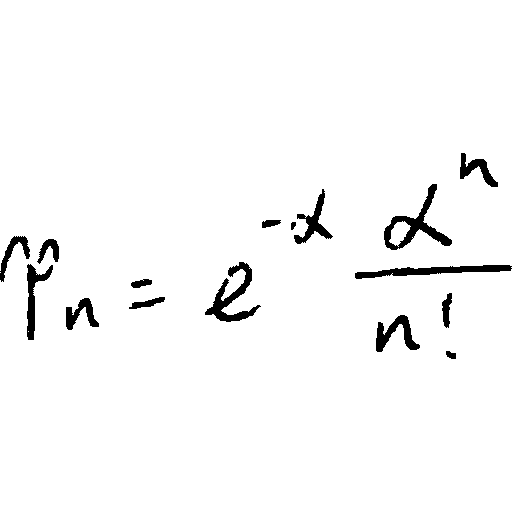 $\Upsilon_n = e^{-\alpha} \frac{\alpha^n}{n!}$